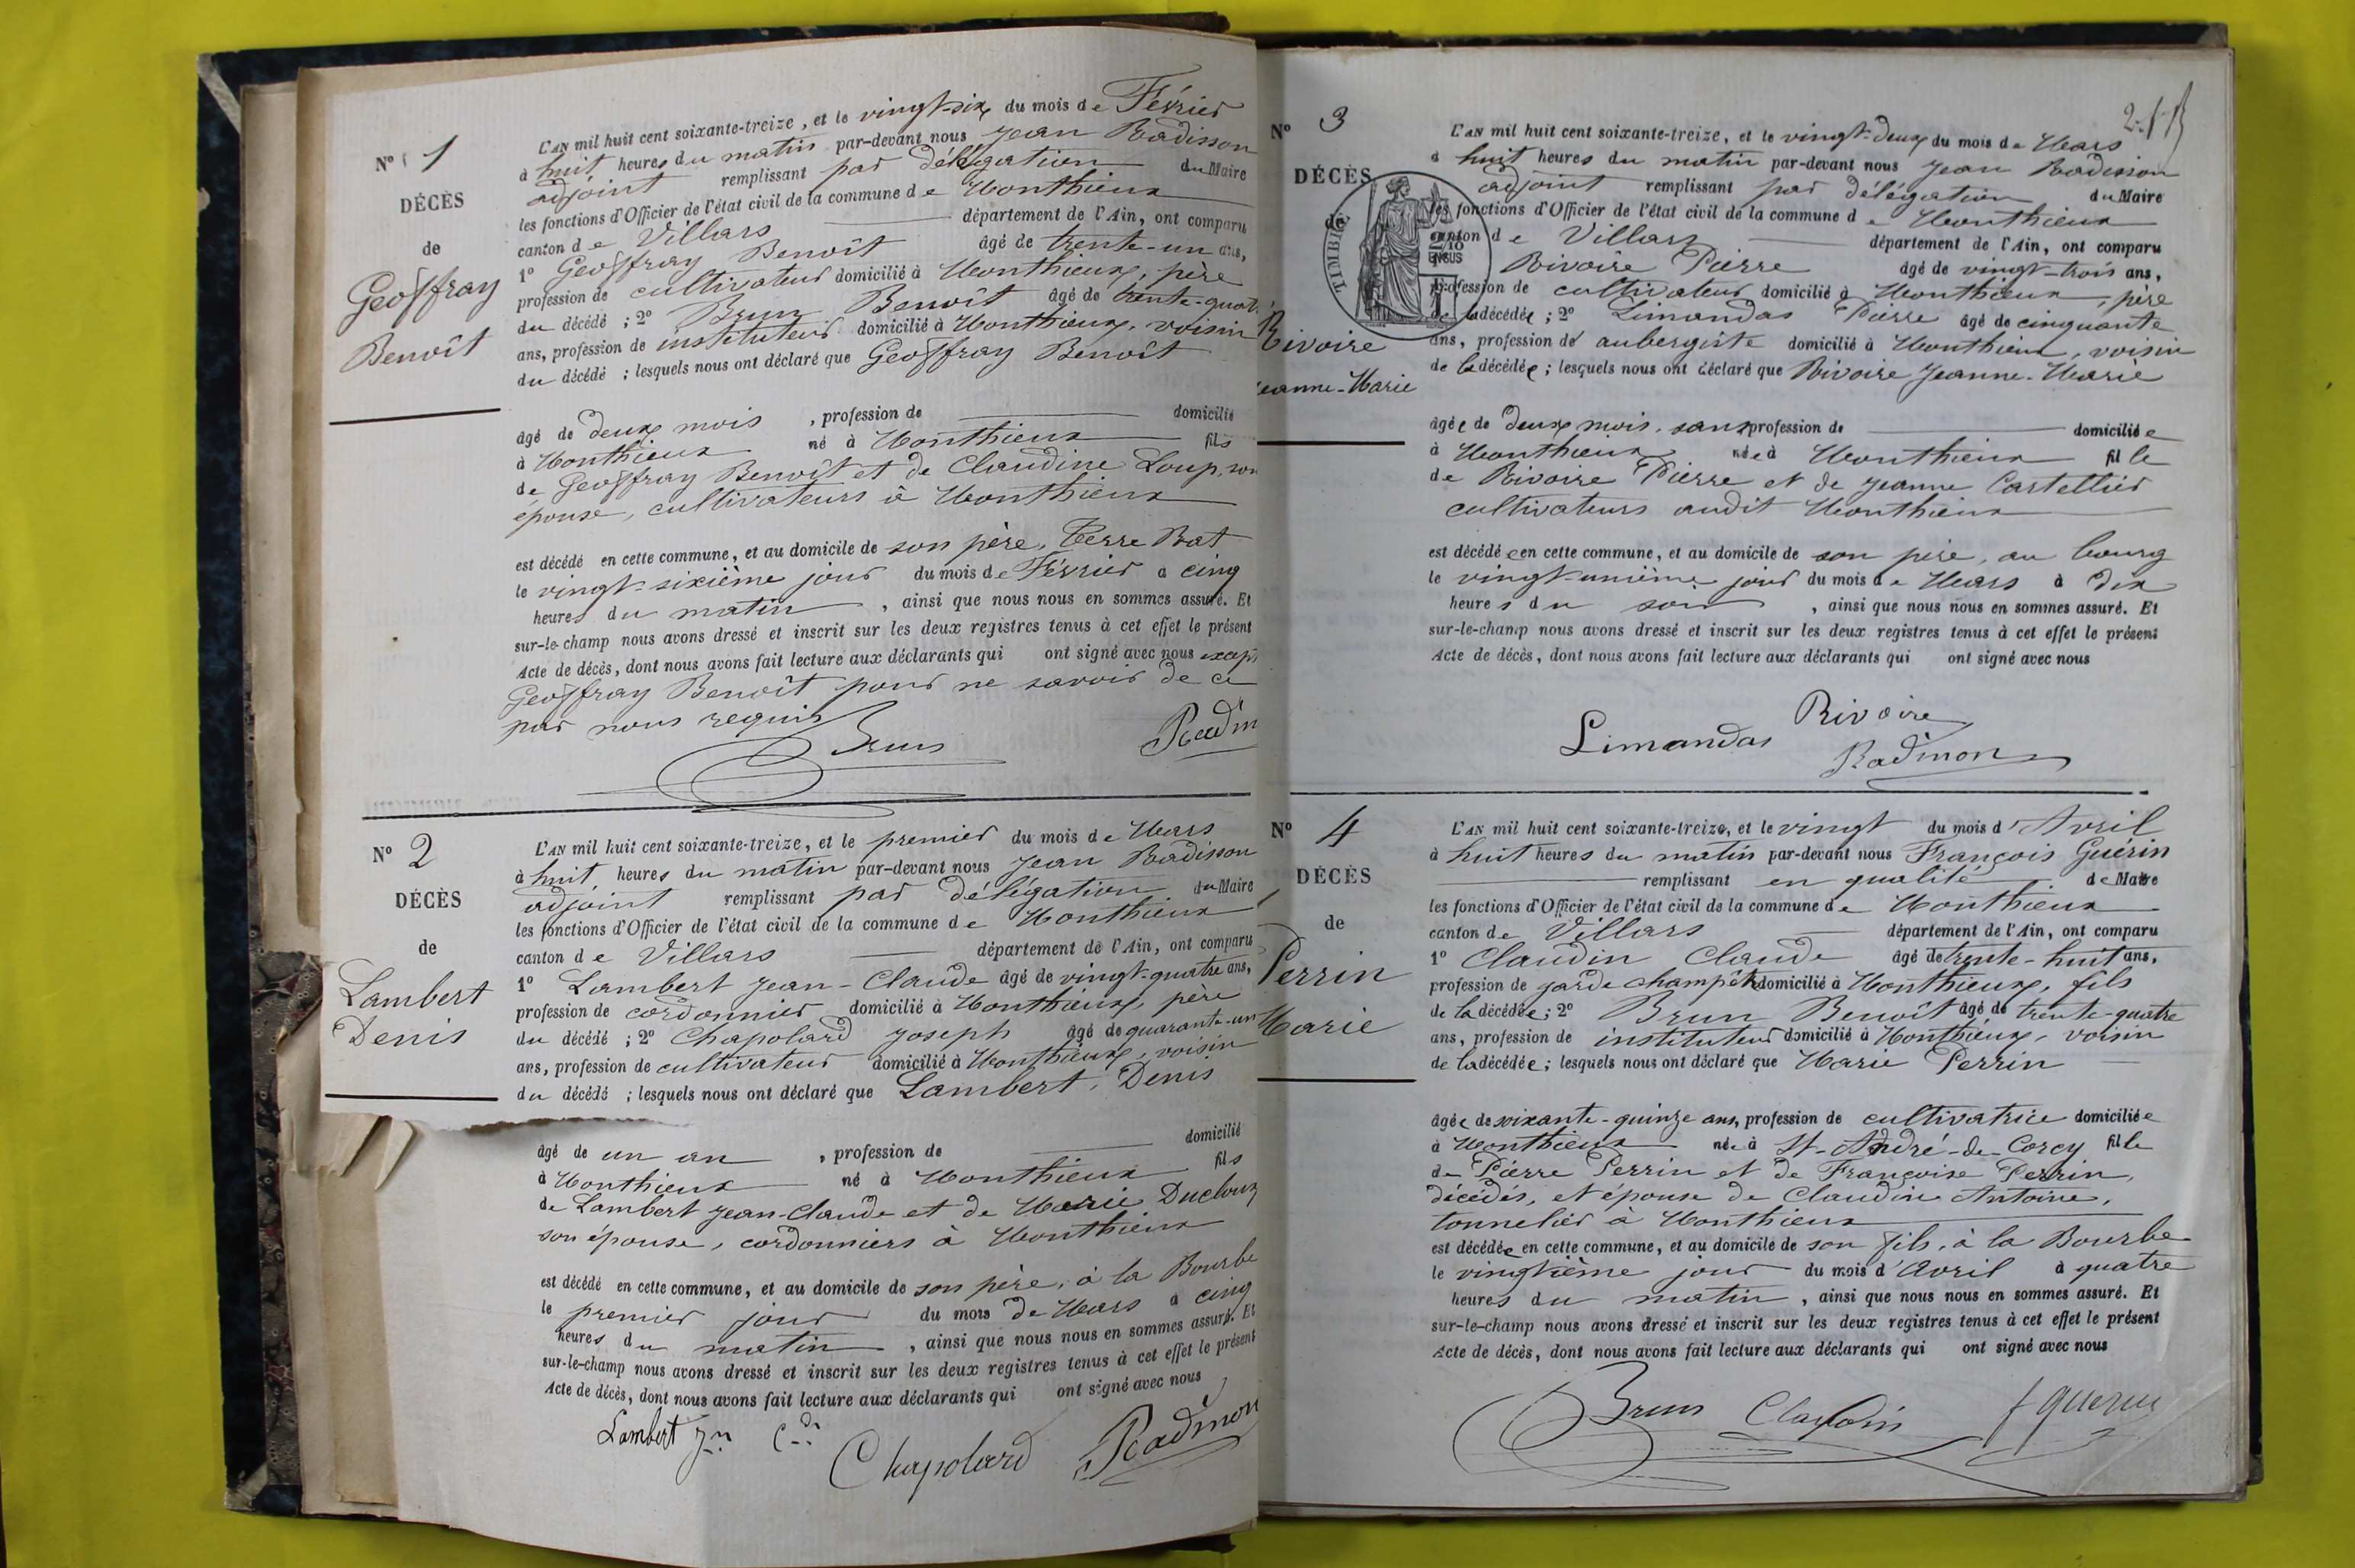 N° 1
DÉCÈS
de
Geoffray
Benoît
L'AN mil huit cent soixante-treize, et le vingt-six du mois de Février
à huit heures du matin par-devant nous Jean Radisson
adjoint remplissant par délégation du Maire
les fonctions d'Officier de l'état civil de la commune de Monthieux
canton de Villars département de l'Ain, ont comparu
1° Geoffray Benoît âgé de trente-un ans,
profession de cultivateur domicilié à Monthieux, père
du décédé ; 2° Brun Benoît âgé de trente-quat
ans, profession de instituteur domicilié à Monthieux, voisin
du décédé ; lesquels nous ont déclaré que Geoffray Benoît
âgé de deux mois , profession de domicilié
à Monthieux né à Monthieux fils
de Geoffray Benoît et de Claudine Loup, son
épouse, cultivateurs à Monthieux
est décédé en cette commune, et au domicile de son père, Terre Rat
le vingt-sixième jour du mois de Février à cinq
heures du matin , ainsi que nous nous en sommes assuré. Et
sur-le-champ nous avons dressé et inscrit sur les deux registres tenus à cet effet le présent
Acte de décès, dont nous avons fait lecture aux déclarants qui ont signé avec nous except
Geoffray Benoît pour ne savoir de ce
par nous requis
Brun
N° 2
DÉCÈS
de
Lambert
Denis
L'AN mil huit cent soixante-treize, et le premier du mois de Mars
à huit heures du matin par-devant nous Jean Radisson
adjoint remplissant par délégation du Maire
les fonctions d'Officier de l'état civil de la commune de Monthieux
canton de Villars département de l'Ain, ont comparu
1° Lambert Jean-Claude âgé de vingt-quatre ans,
profession de cordonnier domicilié à Monthieux, père
du décédé ; 2° Chapolard Joseph âgé de quarante-un
ans, profession de cultivateur domicilié à Monthieux, voisin
du décédé ; lesquels nous ont déclaré que Lambert, Denis
âgé de un an , profession de domicilié
à Monthieux né à Monthieux fils
de Lambert Jean-Claude et de Marie Ducloux
son épouse, cordonniers à Monthieux
est décédé en cette commune, et au domicile de son père, à la Bourbe
le premier jour du mois de Mars à cinq
heures du matin , ainsi que nous nous en sommes assuré. Et
sur-le-champ nous avons dressé et inscrit sur les deux registres tenus à cet effet le présent
Acte de décès, dont nous avons fait lecture aux déclarants qui ont signé avec nous
Lambert Jn Cde
Chapolard Radisson
N° 3
DÉCÈS
de
Rivoire
Jeanne-Marie
TIMBRE
2/10
EN SUS
L'AN mil huit cent soixante-treize, et le vingt-deux du mois de Mars
à huit heures du matin par-devant nous Jean Radisson
adjoint remplissant par délégation du Maire
les fonctions d'Officier de l'état civil de la commune de Monthieux
canton de Villars département de l'Ain, ont comparu
Rivoire Pierre âgé de vingt-trois ans,
profession de cultivateur domicilié à Monthieux, père
de la décédée ; 2° Limandas Pierre âgé de cinquante
ans, profession de aubergiste domicilié à Monthieux, voisin
de la décédée ; lesquels nous ont déclaré que Rivoire Jeanne-Marie
âgée de deux mois, sans profession de domiciliée
à Monthieux née à Monthieux fille
de Rivoire Pierre et de Jeanne Castellier
cultivateurs audit Monthieux
est décédée en cette commune, et au domicile de son père, au bourg
le vingt-unième jour du mois de Mars à dix
heures du soir , ainsi que nous nous en sommes assuré. Et
sur-le-champ nous avons dressé et inscrit sur les deux registres tenus à cet effet le présent
Acte de décès, dont nous avons fait lecture aux déclarants qui ont signé avec nous
Rivoire
Limandas Radisson
N° 4
DÉCÈS
de
Perrin
Marie
L'AN mil huit cent soixante-treize, et le vingt du mois d'Avril
à huit heures du matin par-devant nous François Guérin
remplissant en qualité de Maire
les fonctions d'Officier de l'état civil de la commune de Monthieux
canton de Villars département de l'Ain, ont comparu
1° Claudin Claude âgé de trente-huit ans,
profession de garde champêtre domicilié à Monthieux, fils
de la décédée ; 2° Brun Benoît âgé de trente-quatre
ans, profession de instituteur domicilié à Monthieux, voisin
de la décédée ; lesquels nous ont déclaré que Marie Perrin
âgée de soixante-quinze ans, profession de cultivatrice domiciliée
à Monthieux née à St-André-de-Corcy fille
de Pierre Perrin et de Françoise Perrin,
décédés, et épouse de Claudin Antoine,
tonnelier à Monthieux
est décédée en cette commune, et au domicile de son fils, à la Bourbe
le vingtième jour du mois d'avril à quatre
heures du matin , ainsi que nous nous en sommes assuré. Et
sur-le-champ nous avons dressé et inscrit sur les deux registres tenus à cet effet le présent
Acte de décès, dont nous avons fait lecture aux déclarants qui ont signé avec nous
Brun Claudin f guerin